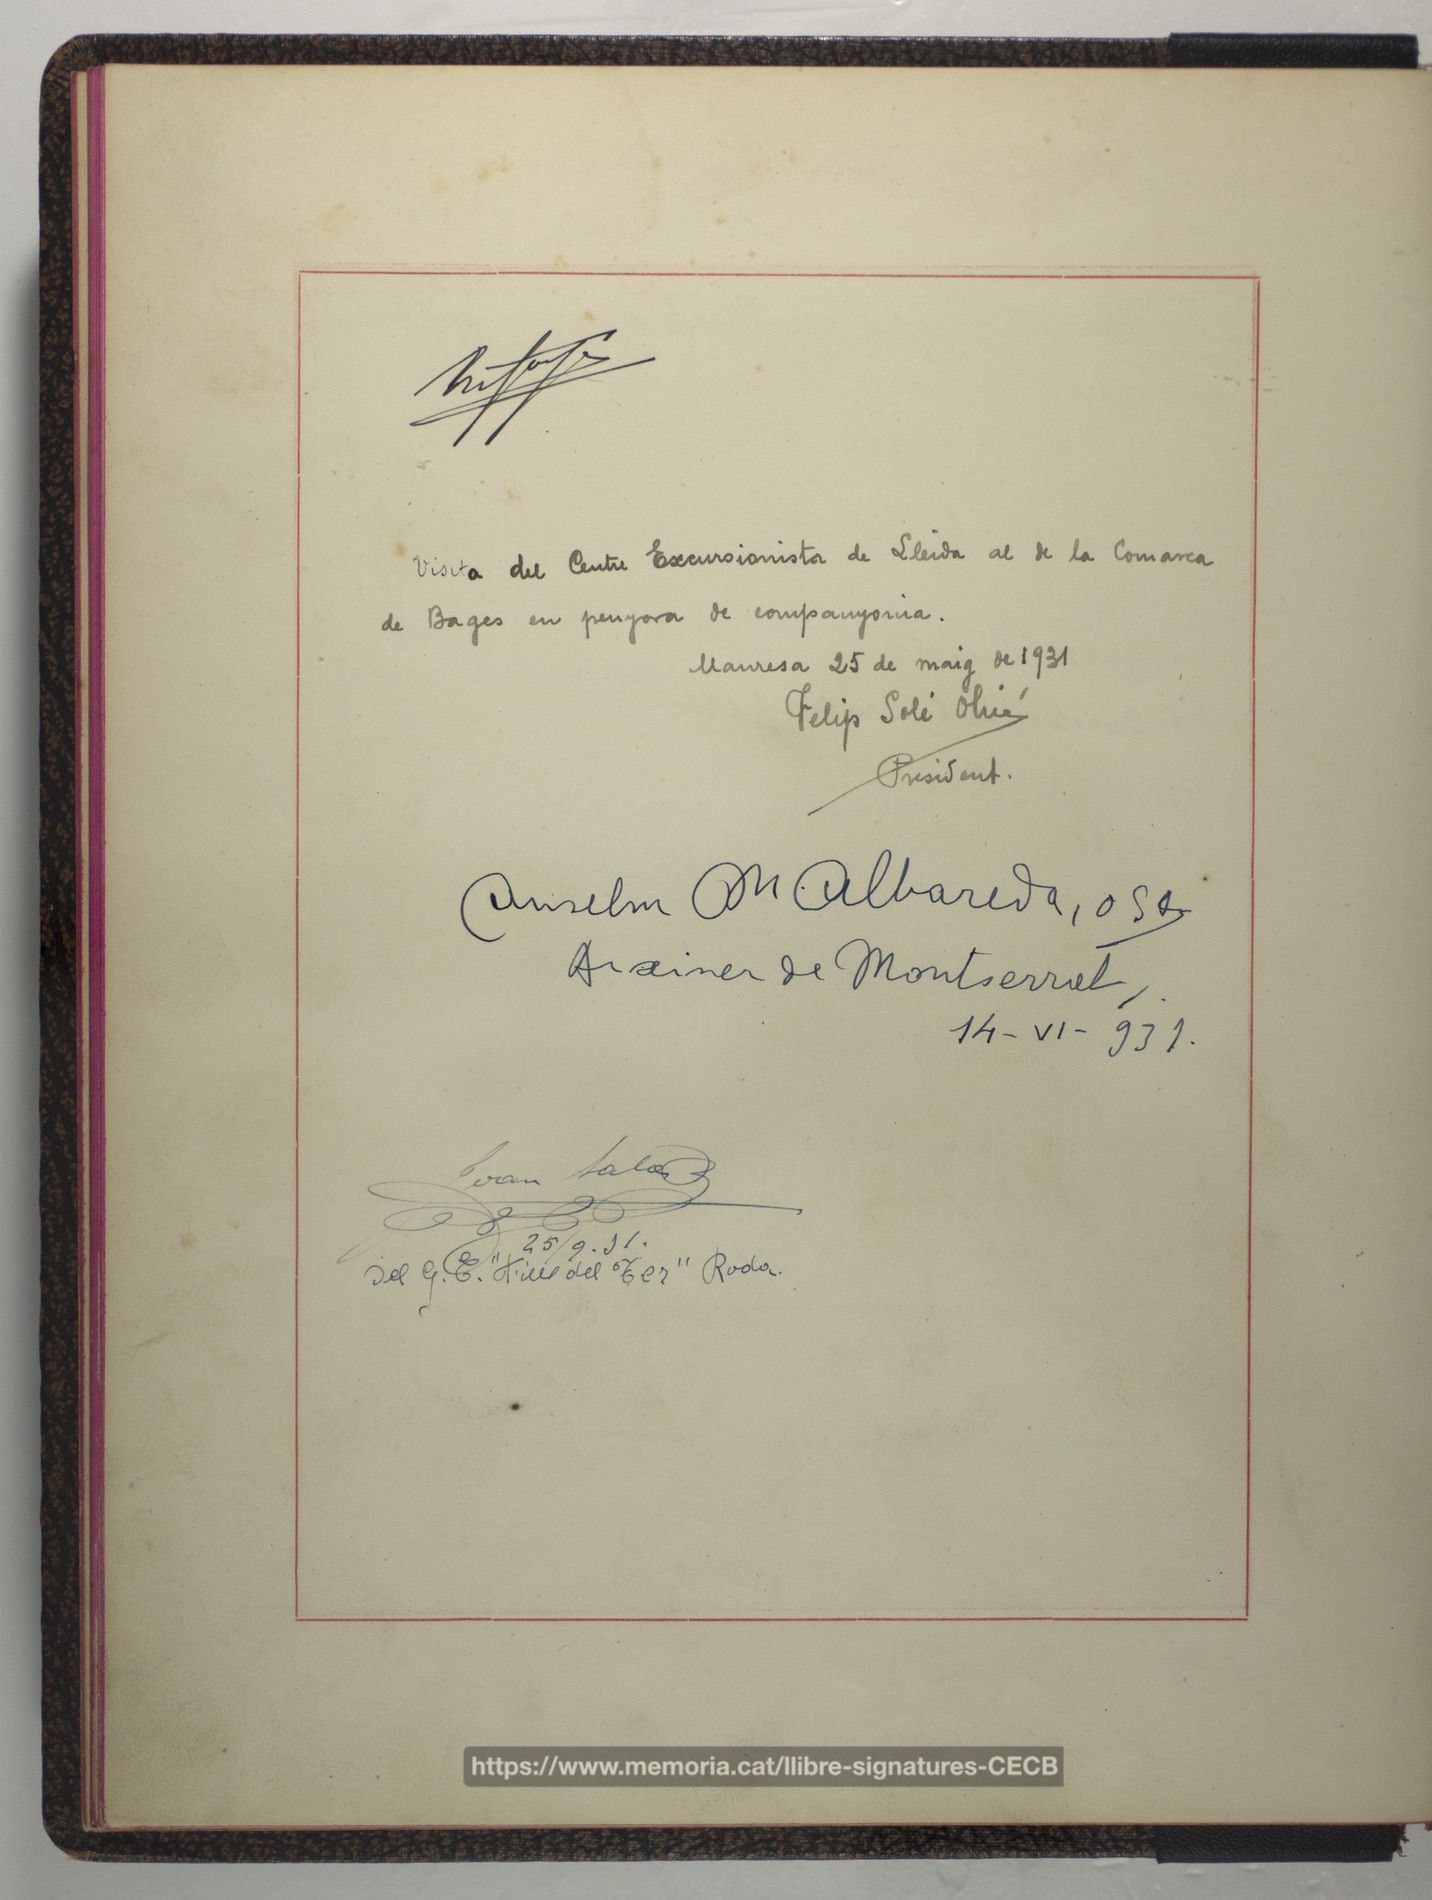 Visita del Centre Excursionista de Lleida al de la Comarca
de Bages en penyora de companyonia.
Manresa 25 de maig de 1931
Felip Solé Olivé
President.
Anselm M. Albareda, OSB
Arxiver de Montserrat,
14-VI-931.
Joan Salas
25/9.31.
Del G.E. "Fills del Ter" Roda.
https://www.memoria.cat/llibre-signatures-CECB